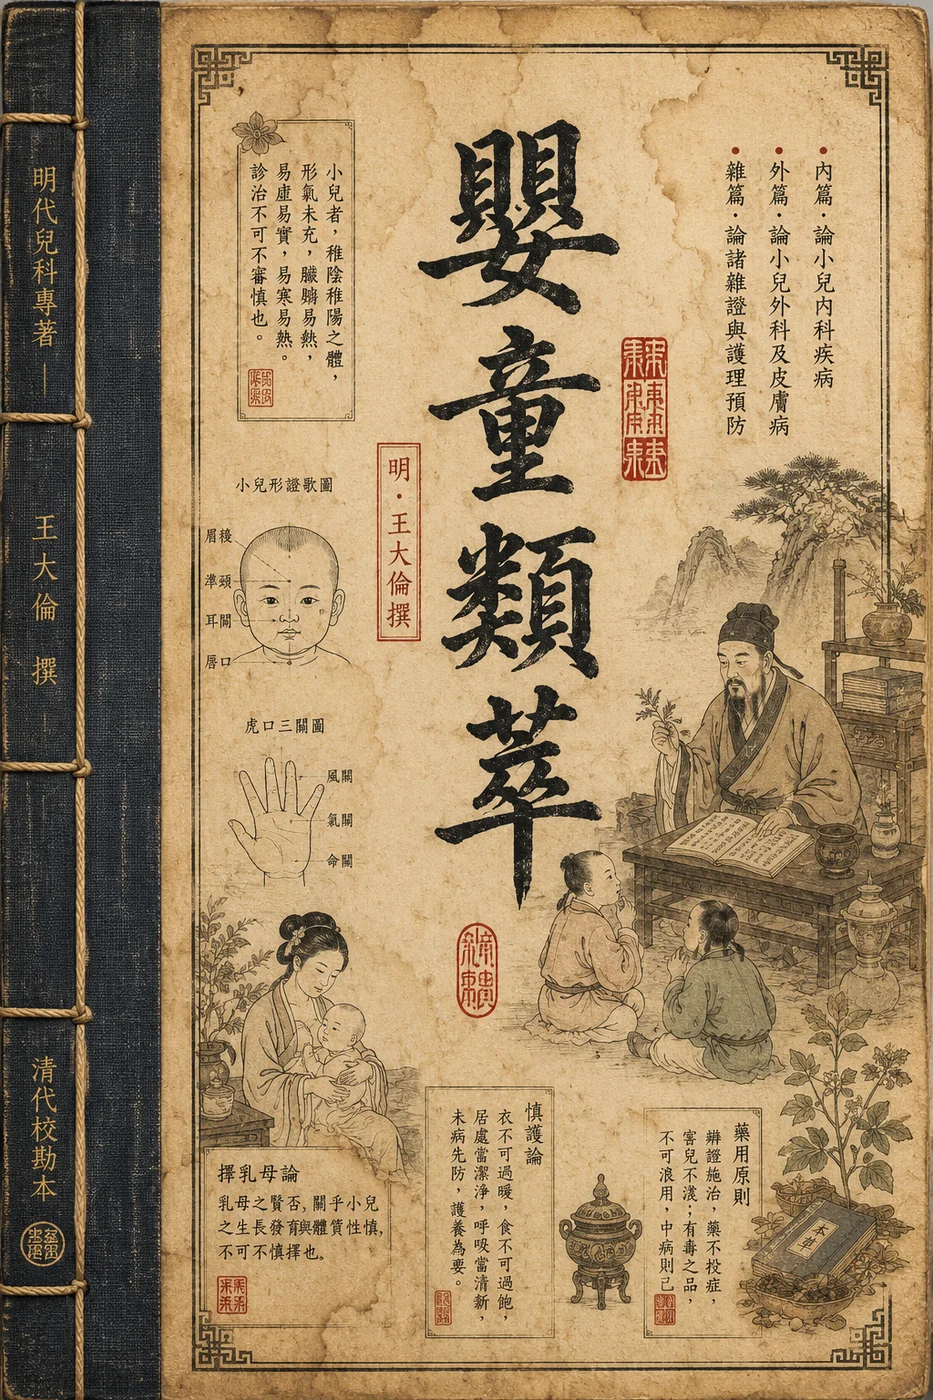 明代兒科專著
王大倫 撰
清代校勘本
嬰童類萃
明·王大倫撰
內篇·論小兒內科疾病
外篇·論小兒外科及皮膚病
雜篇·論諸雜證與護理預防
小兒者，稚陰稚陽之體，
形氣未充，臟易熱，
易虛易實，易寒易熱。
診治不可不審慎也。
小兒形證歌圖
眉
準頭
耳關
唇口
虎口三關圖
風關
氣關
命關
擇乳母論
乳母之賢否，關乎小兒
之生長發育與體質性慎，
不可不慎擇也。
慎護論
衣不可過暖，食不可過飽，
居處當潔淨，呼吸當清新，
未病先防，護養為要。
藥用原則
辨證施治，藥不投症，
害兒不淺；有毒之品，
不可浪用，中病則已
本草